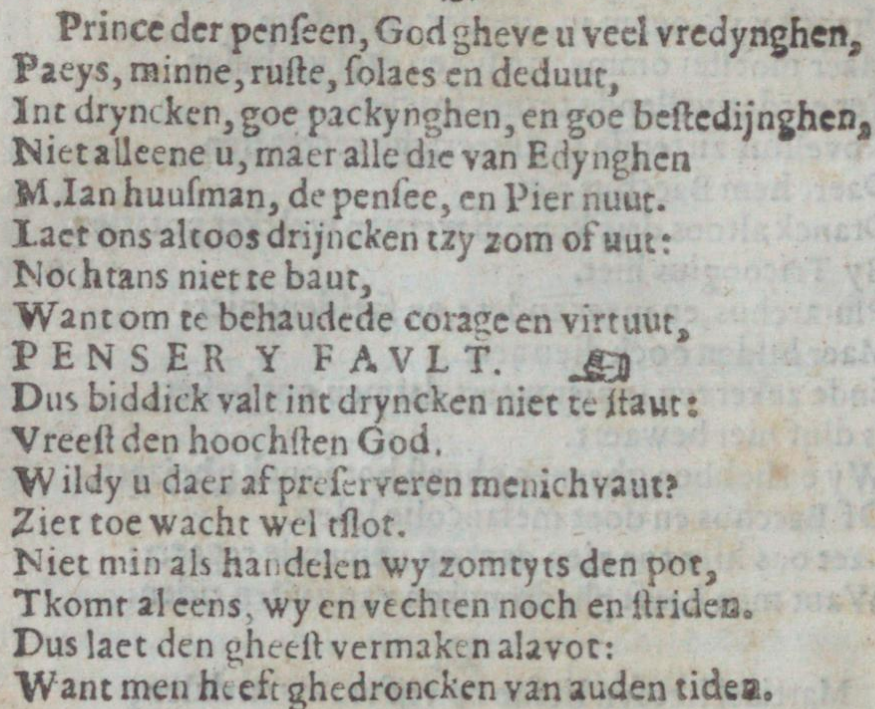 Prince der penſeen, God gheve u veel vredynghen,
Paeys, minne, ruſte, ſolaes en deduut,
Int dryncken, goe packynghen, en goe beſtedijnghen,
Niet alleene u, maer alle die van Edynghen
M. Ian huuſman, de penſee, en Pier nuut.
Laet ons altoos drijncken tzy zom of uut:
Nochtans niet te baut,
Want om te behaudede corage en virtuut,
PENSER Y FAVLT.
Dus biddick valt int dryncken niet te ſtaut:
Vreeſt den hoochſten God.
Wildy u daer af preſerveren menichvaut?
Ziet toe wacht wel tſlot.
Niet min als handelen wy zomtyts den pot,
Tkomt al eens, wy en vechten noch en ſtriden.
Dus laet den gheeſt vermaken alavot:
Want men heeft ghedroncken van auden tiden.